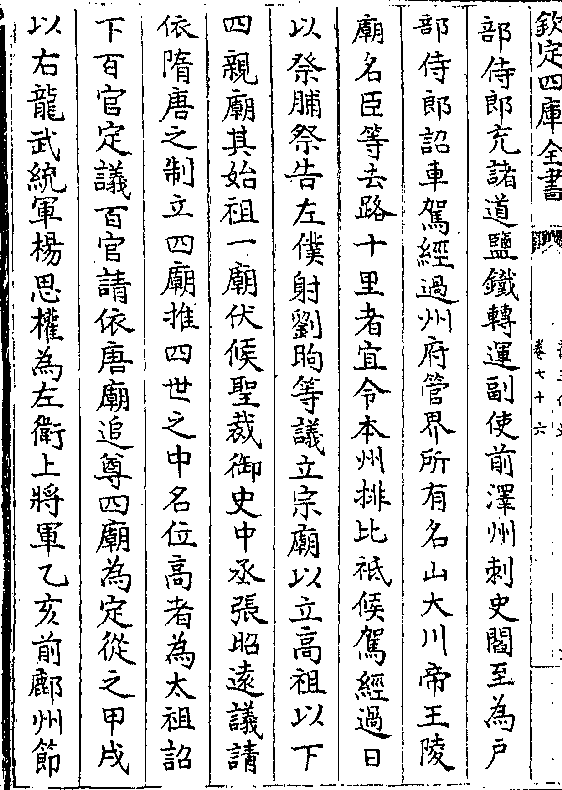 欽定四庫全書
卷七十六
部侍郎充諸道鹽鐵轉運副使前澤州刺史閻至為戶
部侍郎詔車駕經過州府管界所有名山大川帝王陵
廟名臣等去路十里者宜令本州排比祗候駕經過日
以祭脯祭告左僕射劉昫等議立宗廟以立高祖以下
四親廟其始祖一廟伏候聖裁御史中丞張昭遠議請
依隋唐之制立四廟推四世之中名位高者為太祖詔
下百官定議百官請依唐廟追尊四廟為定從之甲戌
以右龍武統軍楊思權為左衛上將軍乙亥前鄜州節